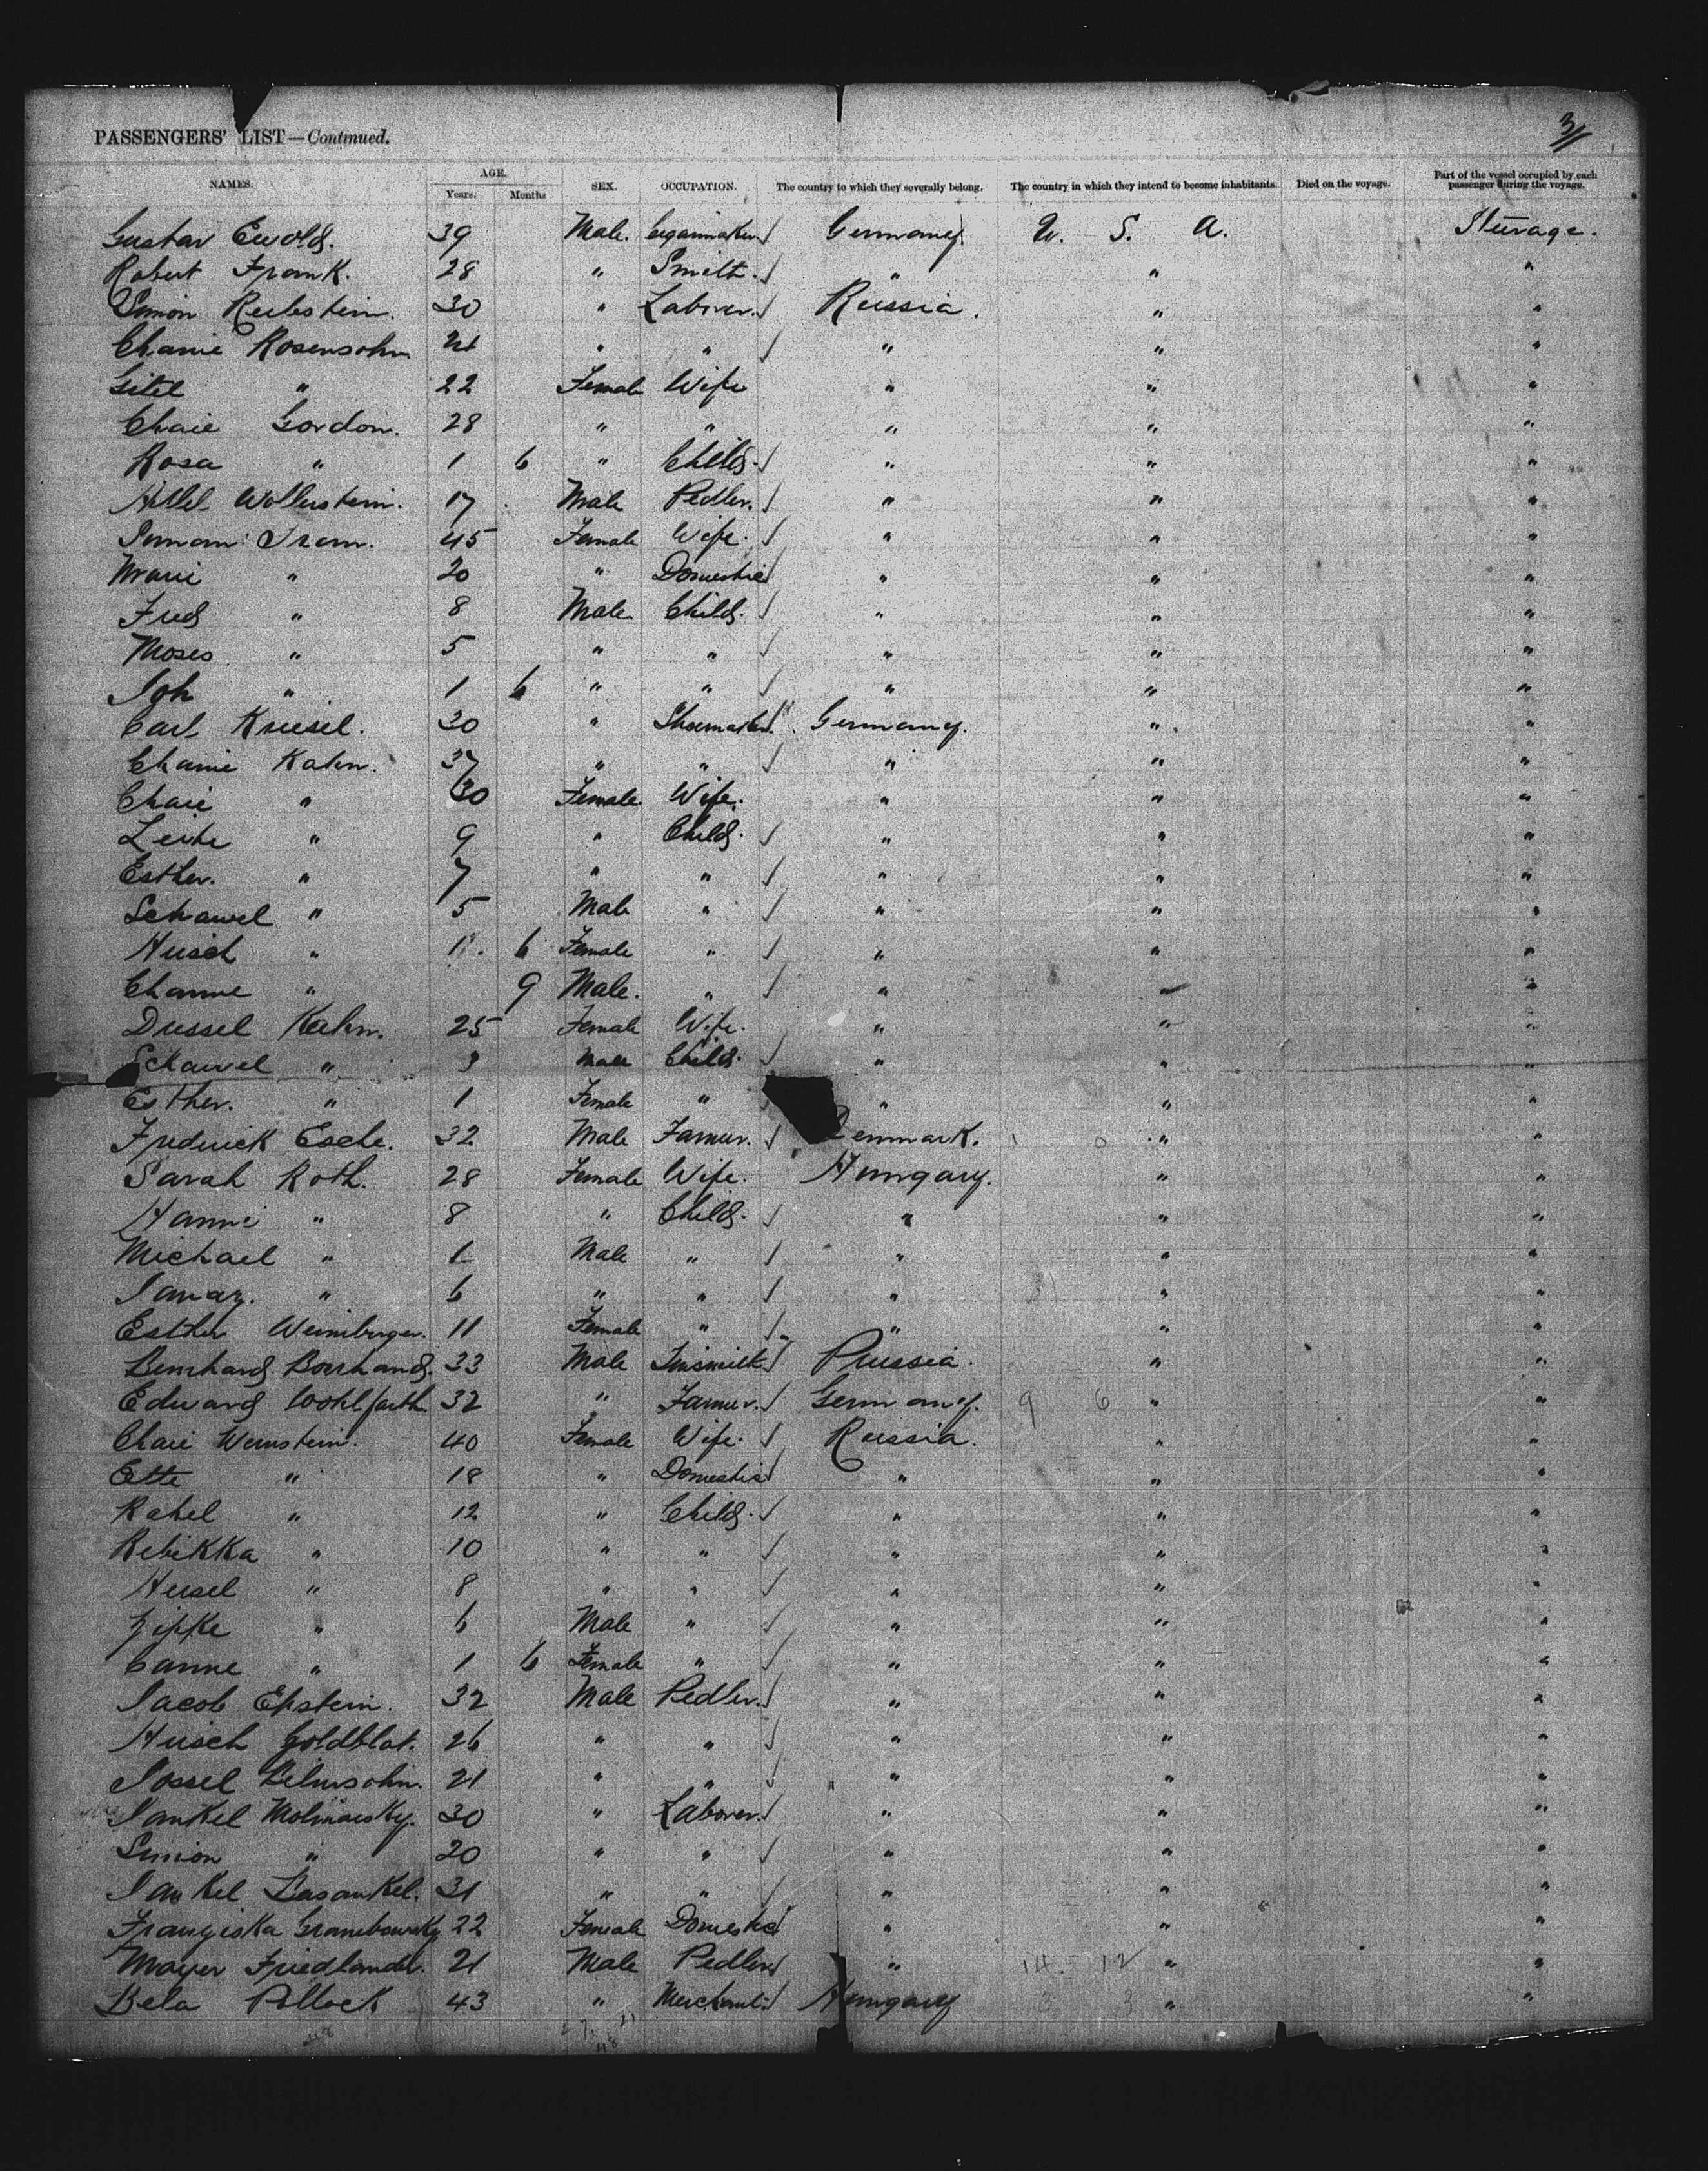 3
PASSENGERS' LIST—Continued.
NAMES. AGE. Years. Months SEX. OCCUPATION. The country to which they severally belong. The country in which they intend to become inhabitants. Died on the voyage. Part of the vessel occupied by each passenger during the voyage.
Gustav Ewold. 39 Male. Cigarmaker Germany U. S. A. Steerage.
Robert Frank. 28 " Smith. " " "
Simon Reibstein. 30 " Laborer. Russia. " "
Chanie Rosensohn 21 " " " " "
Gitel " 22 Female Wife " " "
Chaie Gordon. 28 " " " " "
Rosa " 1 6 " Child. " " "
Hillel Wollerstein. 17 Male Pedler. " " "
45 Female Wife. " " "
" 20 " Domestic " " "
Fred " 8 Male Child. " " "
Moses " 5 " " " " "
Joh " 1 6 " " " " "
Carl Kriesel. 30 " Shoemaker. Germany. " "
Chanie Kahn. 37 " " " " "
Chaie " 30 Female. Wife. " " "
" 9 " Child. " " "
Esther. " 7 " " " " "
Schawel " 5 Male " " " "
Hirsch " 1 6 Female " " " "
Channe " 9 Male. " " " "
Dussel Kahn. 25 Female Wife. " " "
Schawel " 3 Male Child. " " "
Esther. " 1 Female " " " "
Frederick Esche. 32 Male Farmer. Denmark. " "
Sarah Roth. 28 Female Wife. Hungary. " "
Hanni " 8 " Child. " " "
Michael " 1 Male " " " "
" 6 " " " " "
Esther Weinberger. 11 Female " " " "
Bernhard 33 Male Tinsmith Prussia. " "
Edward Wohlfarth 32 " Farmer. Germany. 9 6 " "
Chaie Wernstein. 40 Female Wife. Russia. " "
Ette " 18 " Domestic " " "
Rahel " 12 " Child. " " "
Rebikka " 10 " " " " "
" 8 " " " " "
Zipke " 6 Male " " " "
Canne " 1 6 Female " " " "
Jacob Epstein. 32 Male Pedler. " " "
Hirsch Goldblat. 26 " " " " "
Jossel 21 " " " " "
Jankel Molinarsky. 30 " Laborer. " " "
Simon " 20 " " " " "
Jankel 31 " " " " "
Franziska Grambowsky 22 Female Domestic " " "
Mayer Friedlander. 21 Male Pedler " 14 12 " "
Bela Pollock 43 " Merchant. Hungary 3 3 " "
48